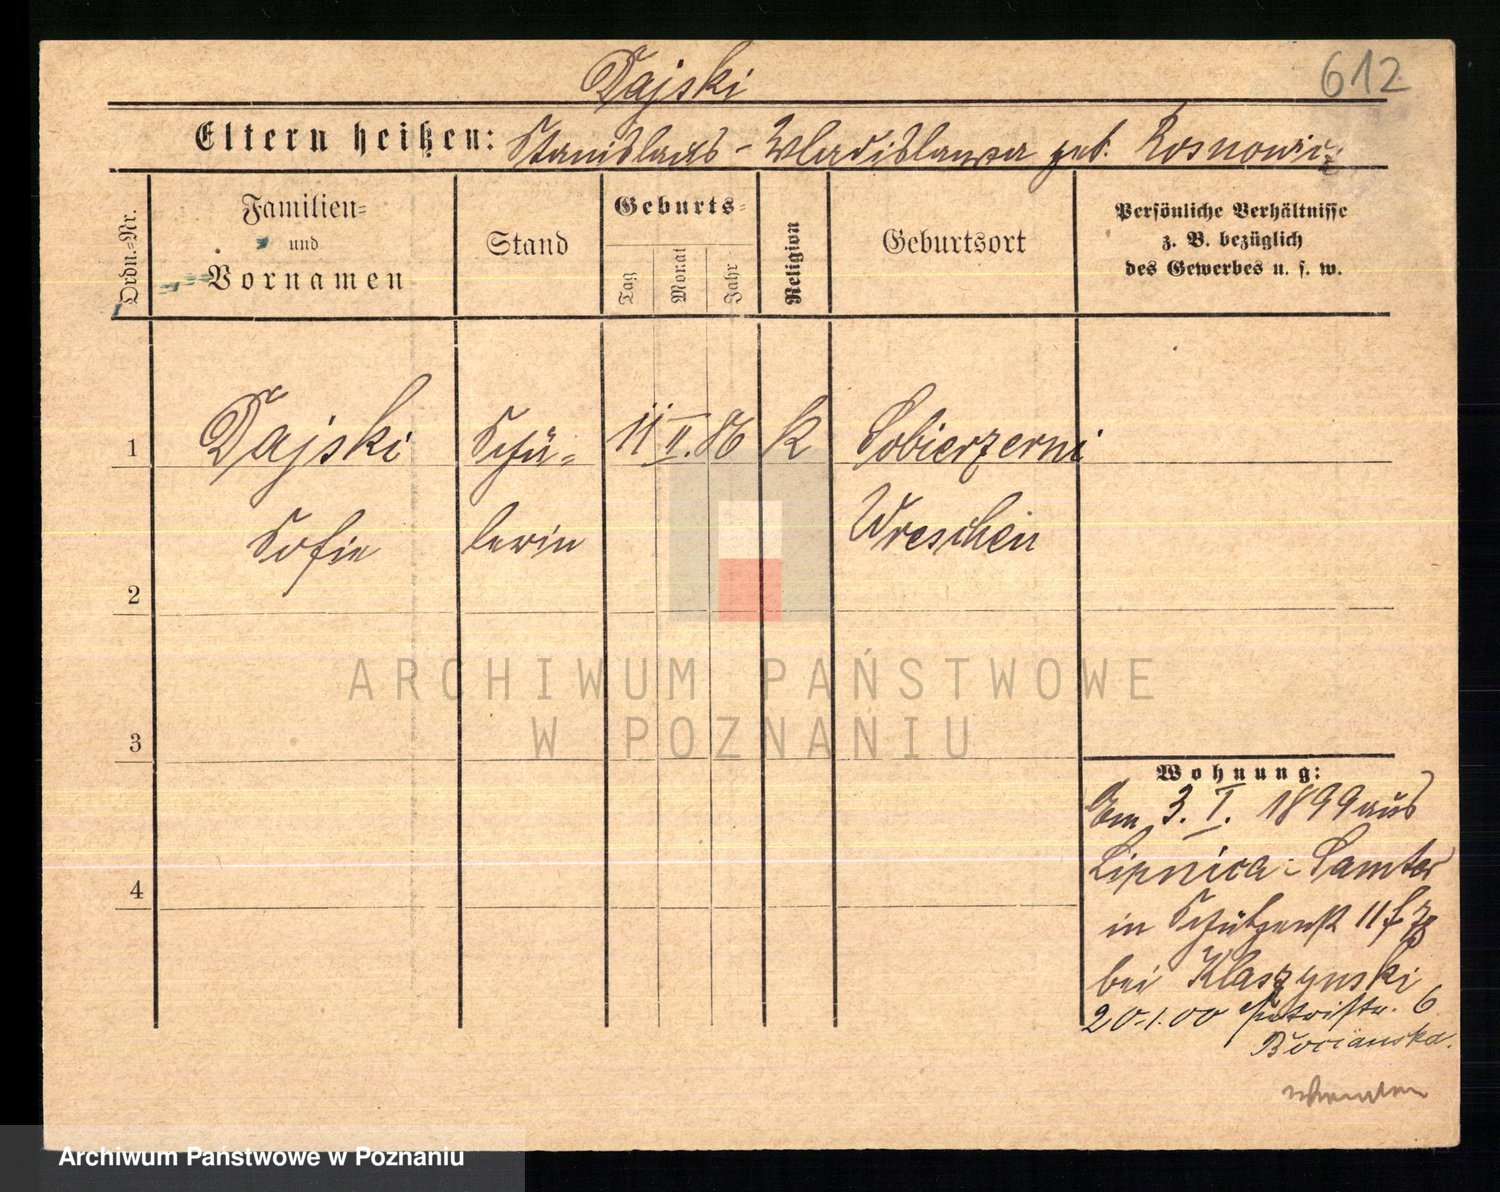 612
Dajski
Eltern heißen: Stanislaus - Wladislawa geb. Rosnowicz
Ordn.-Nr.
Familien-
und
Vornamen
Stand
Geburts-
Tag
Monat
Jahr
Religion
Geburtsort
Persönliche Verhältnisse
z. B. bezüglich
des Gewerbes u. s. w.
1 Dajski Schü- 11 II. 86 K Sobierzerni
Sofie lerin Wreschen
2
3
4
ARCHIWUM PAŃSTWOWE
W POZNANIU
Wohnung:
Am 3. I. 1899 aus
Lipnica - Samter
in Schützenstr 11
bei Klaszynski
20.1.00 Petristr. 6
Bocianska.
wenden
Archiwum Państwowe w Poznaniu